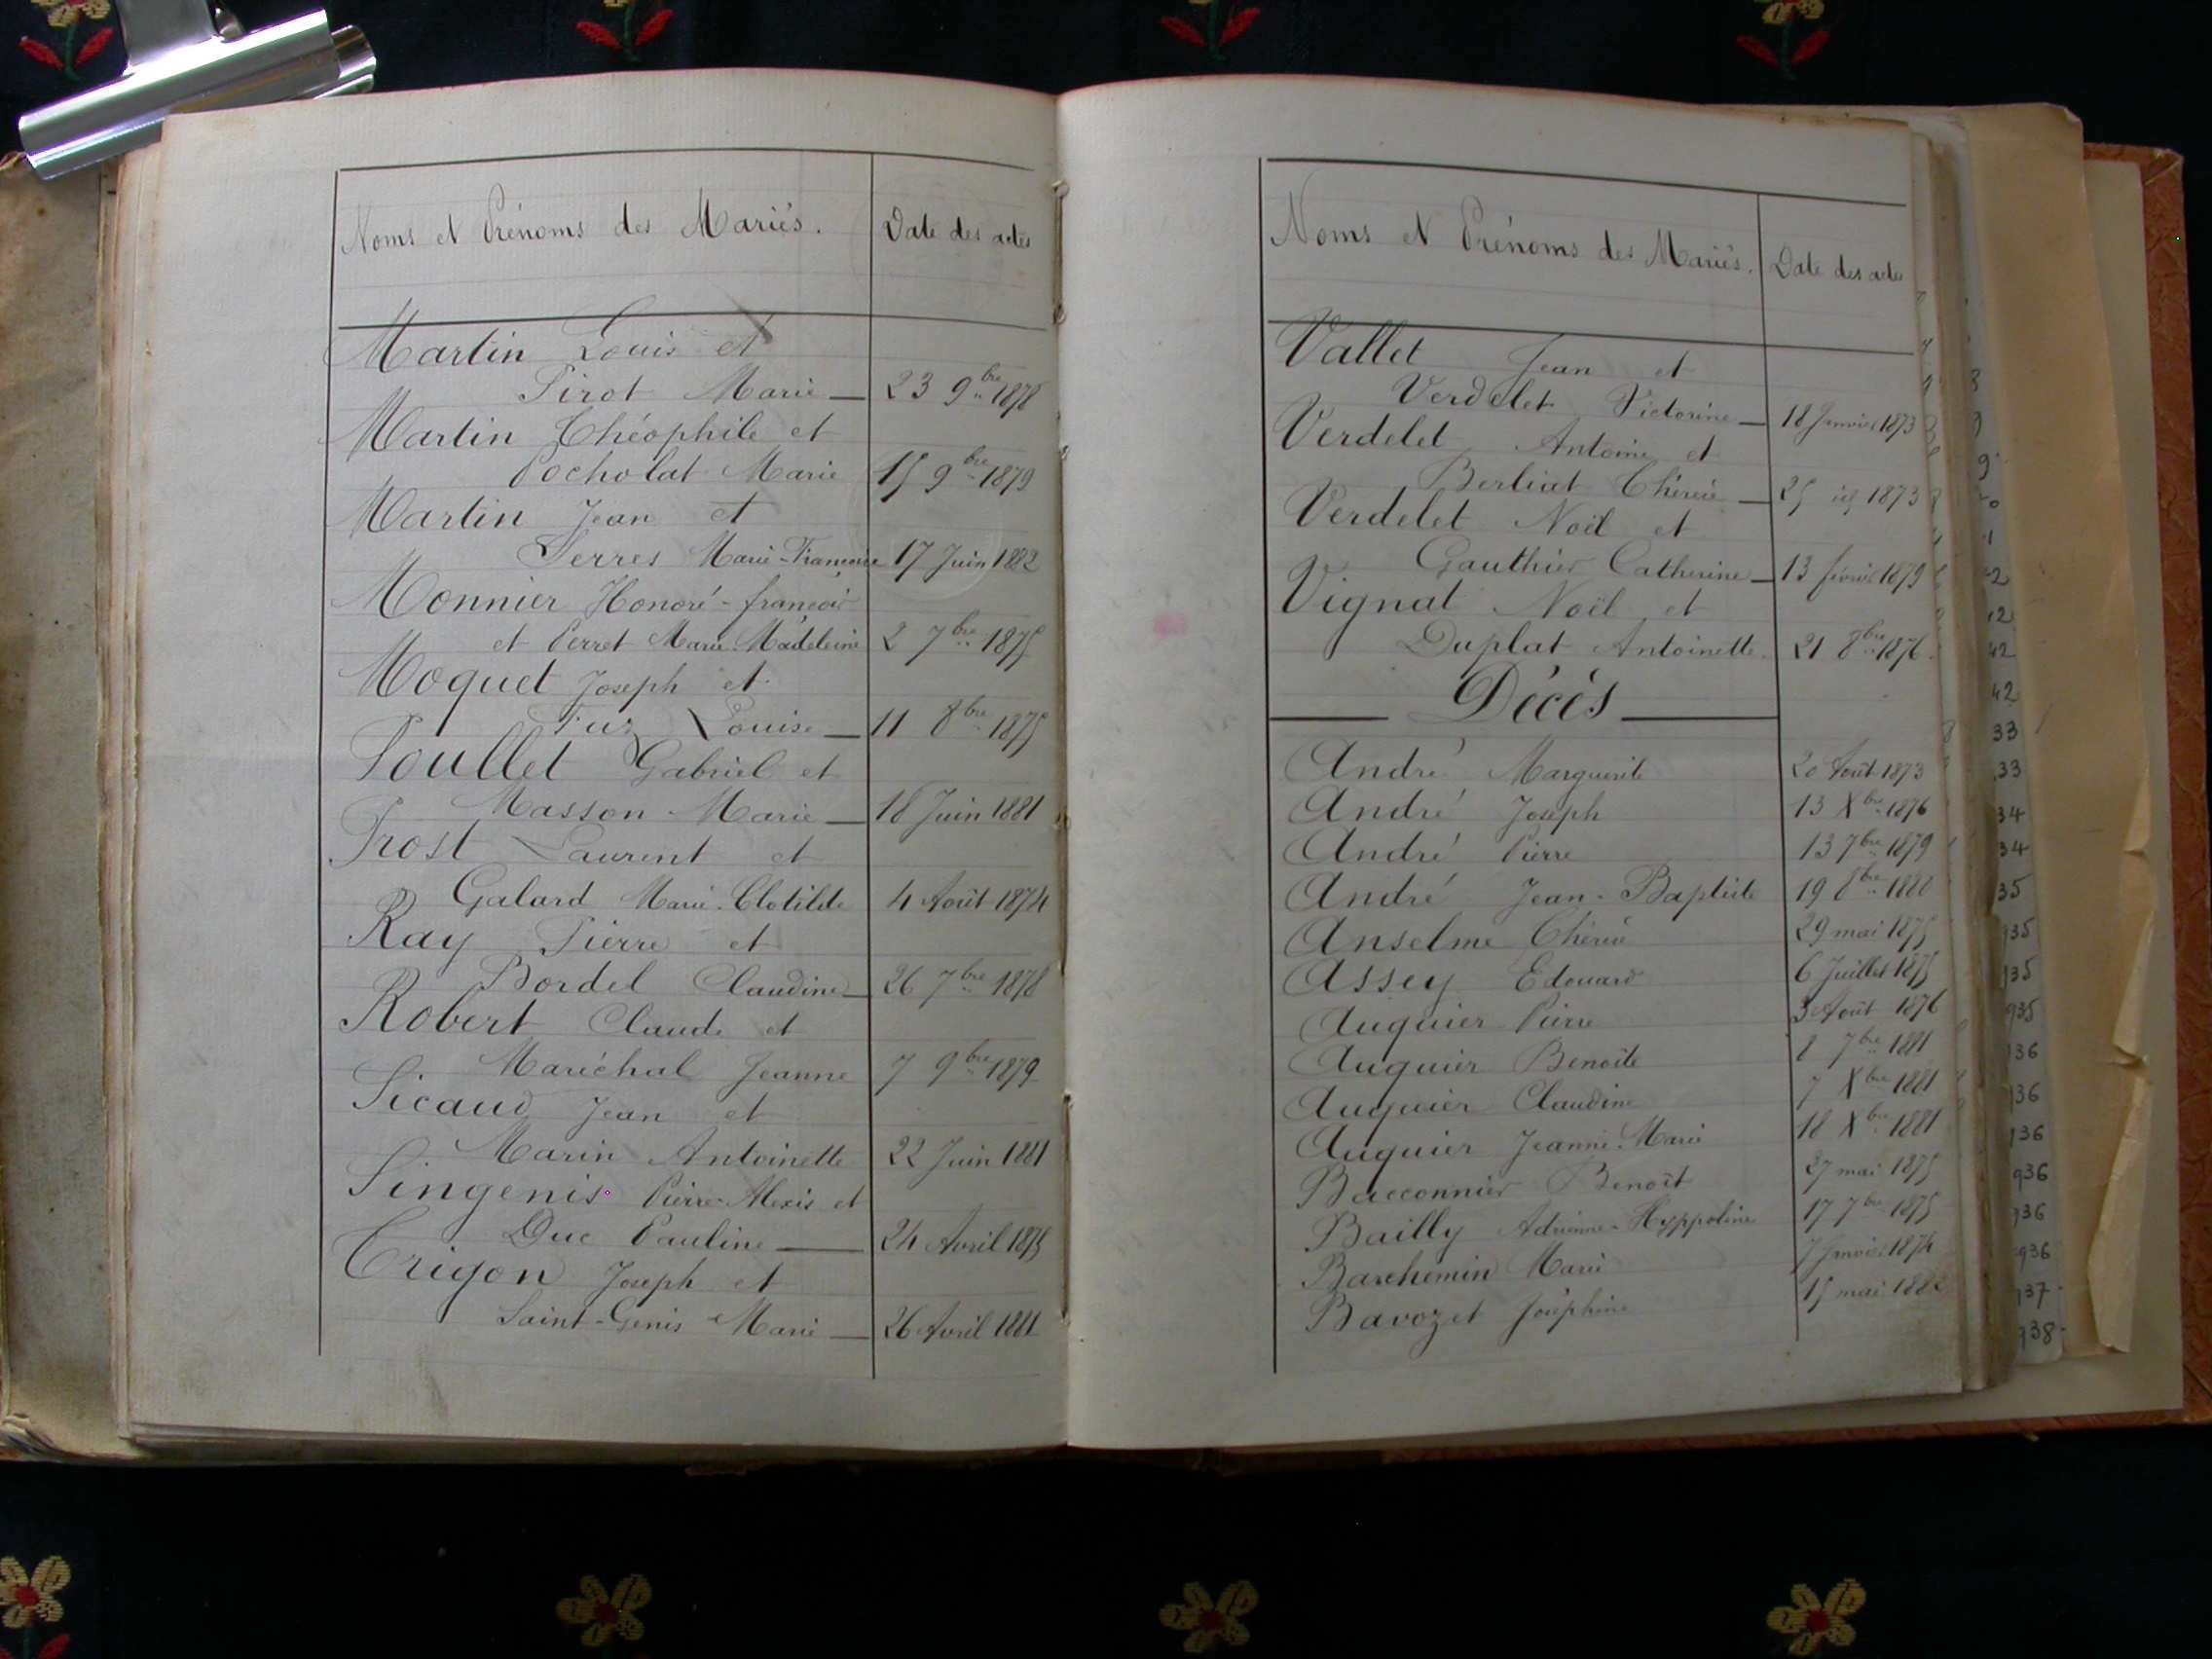 Noms et Prénoms des Mariés. Date des actes
Martin Louis et
Pirot Marie — 23 9bre 1878
Martin Théophile et
Pocholat Marie 15 9bre 1879
Martin Jean et
Serres Marie-Françoise 17 Juin 1882
Monnier Honoré-françois
et Perret Marie-Madeleine 2 7bre 1875
Moquet Joseph et
Louise — 11 8bre 1875
Poullet Gabriel et
Masson Marie — 18 Juin 1881
Prost Laurent et
Galard Marie-Clotilde 4 Août 1874
Ray Pierre et
Bordel Claudine — 26 7bre 1878
Robert Claude et
Maréchal Jeanne 7 9bre 1879
Sicaud Jean et
Marin Antoinette 22 Juin 1881
Singenis Pierre-Alexis et
Duc Pauline — 24 Avril 1875
Trigon Joseph et
Saint-Genis Marie — 26 Avril 1881
Noms et Prénoms des Mariés. Date des actes
Vallet Jean et
Verdelet Victorine — 18 Janvier 1873
Verdelet Antoine et
Berliat Thérèse — 25 1873
Verdelet Noël et
Gauthier Catherine — 13 février 1879
Vignat Noël et
Duplat Antoinette. 21 8bre 1876.
— Décès —
André Marguerite 20 Août 1873
André Joseph 13 Xbre 1876
André Pierre 13 7bre 1879
André Jean-Baptiste 19 8bre 1880
Anselme Thérèse 29 mai 1875
Assey Edouard 6 Juillet 1875
Auguier Pierre 3 Août 1876
Auguier Benoîte 8 7bre 1881
Auguier Claudine 7 Xbre 1881
Auguier Jeanne-Marie 18 Xbre 1881
Bacconnier Benoît 27 mai 1875
Bailly Adrienne-Hyppoline 17 7bre 1875
Barchemin Marie 7 Janvier 1874
Bavozet Joséphine 15 mai 1882